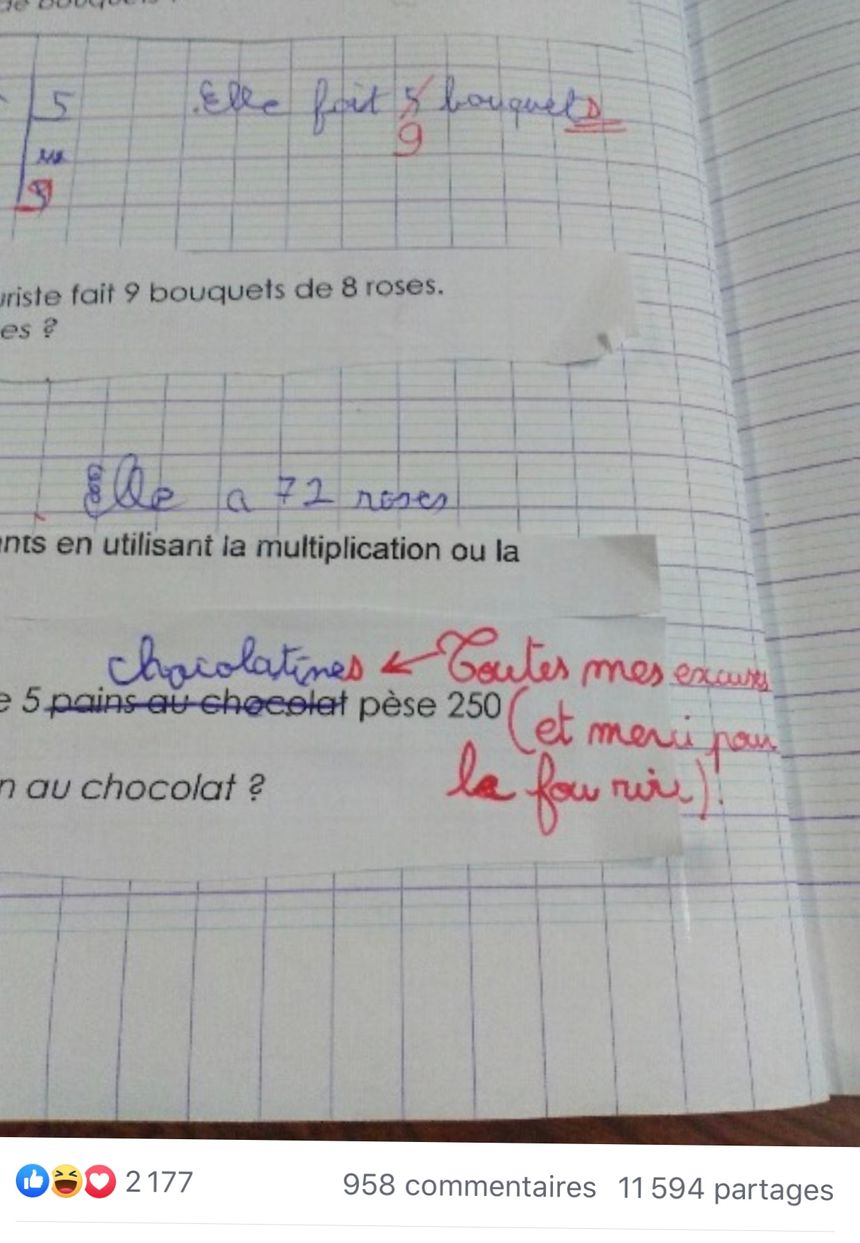 5 Elle fait 5 bouquets
9
9
uriste fait 9 bouquets de 8 roses.
es ?
Elle a 72 roses
nts en utilisant la multiplication ou la
chocolatines ← Toutes mes excuses
e 5 pains au chocolat pèse 250 (et merci pour
n au chocolat ? le fou rire)!
2 177 958 commentaires 11 594 partages